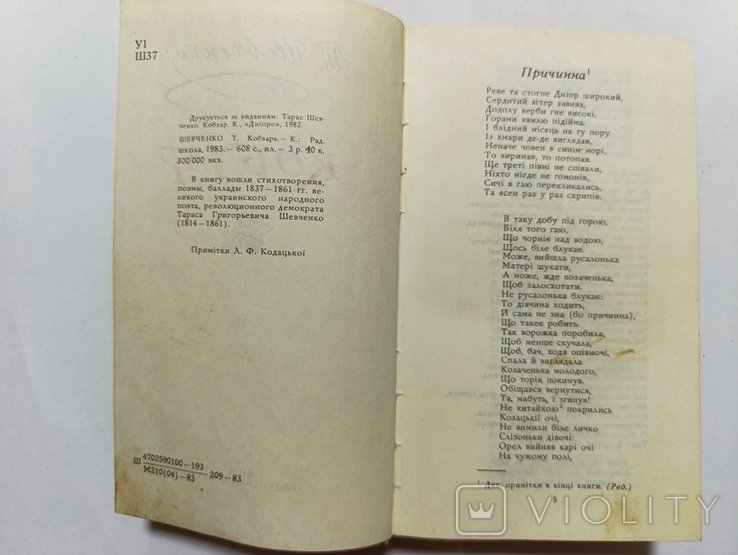 У1
Ш37
Друкується за виданням: Тарас Шев-
ченко. Кобзар. К., «Дніпро», 1982.
ШЕВЧЕНКО Т. Кобзарь.— К.: Рад.
школа, 1983.— 608 с., ил.— 3 р. 40 к.
300 000 экз.
В книгу вошли стихотворения,
поэмы, баллады 1837—1861 гг. ве-
ликого украинского народного
поэта, революционного демократа
Тараса Григорьевича Шевченко
(1814—1861).
Примітки Л. Ф. Кодацької
Ш 4702590100—193
М210(04)—83
209—83
Причинна¹
Реве та стогне Дніпр широкий,
Сердитий вітер завива,
Додолу верби гне високі,
Горами хвилю підійма.
І блідний місяць на ту пору
Із хмари де-де виглядав,
Неначе човен в синім морі,
То виринав, то потопав.
Ще треті півні не співали,
Ніхто нігде не гомонів,
Сичі в гаю перекликались,
Та ясен раз у раз скрипів.
В таку добу під горою,
Біля того гаю,
Що чорніє над водою,
Щось біле блукає.
Може, вийшла русалонька
Матері шукати,
А може, жде козаченька,
Щоб залоскотати.
Не русалонька блукає:
То дівчина ходить,
Й сама не зна (бо причинна),
Що такеє робить.
Так ворожка поробила,
Щоб менше скучала,
Щоб, бач, ходя опівночі,
Спала й виглядала
Козаченька молодого,
Що торік покинув.
Обіщався вернутися,
Та, мабуть, і згинув!
Не китайкою² покрились
Козацькії очі,
Не вимили біле личко
Слізоньки дівочі:
Орел вийняв карі очі
На чужому полі,
¹ Див. примітки в кінці книги. (Ред.)
5
VIOLITY